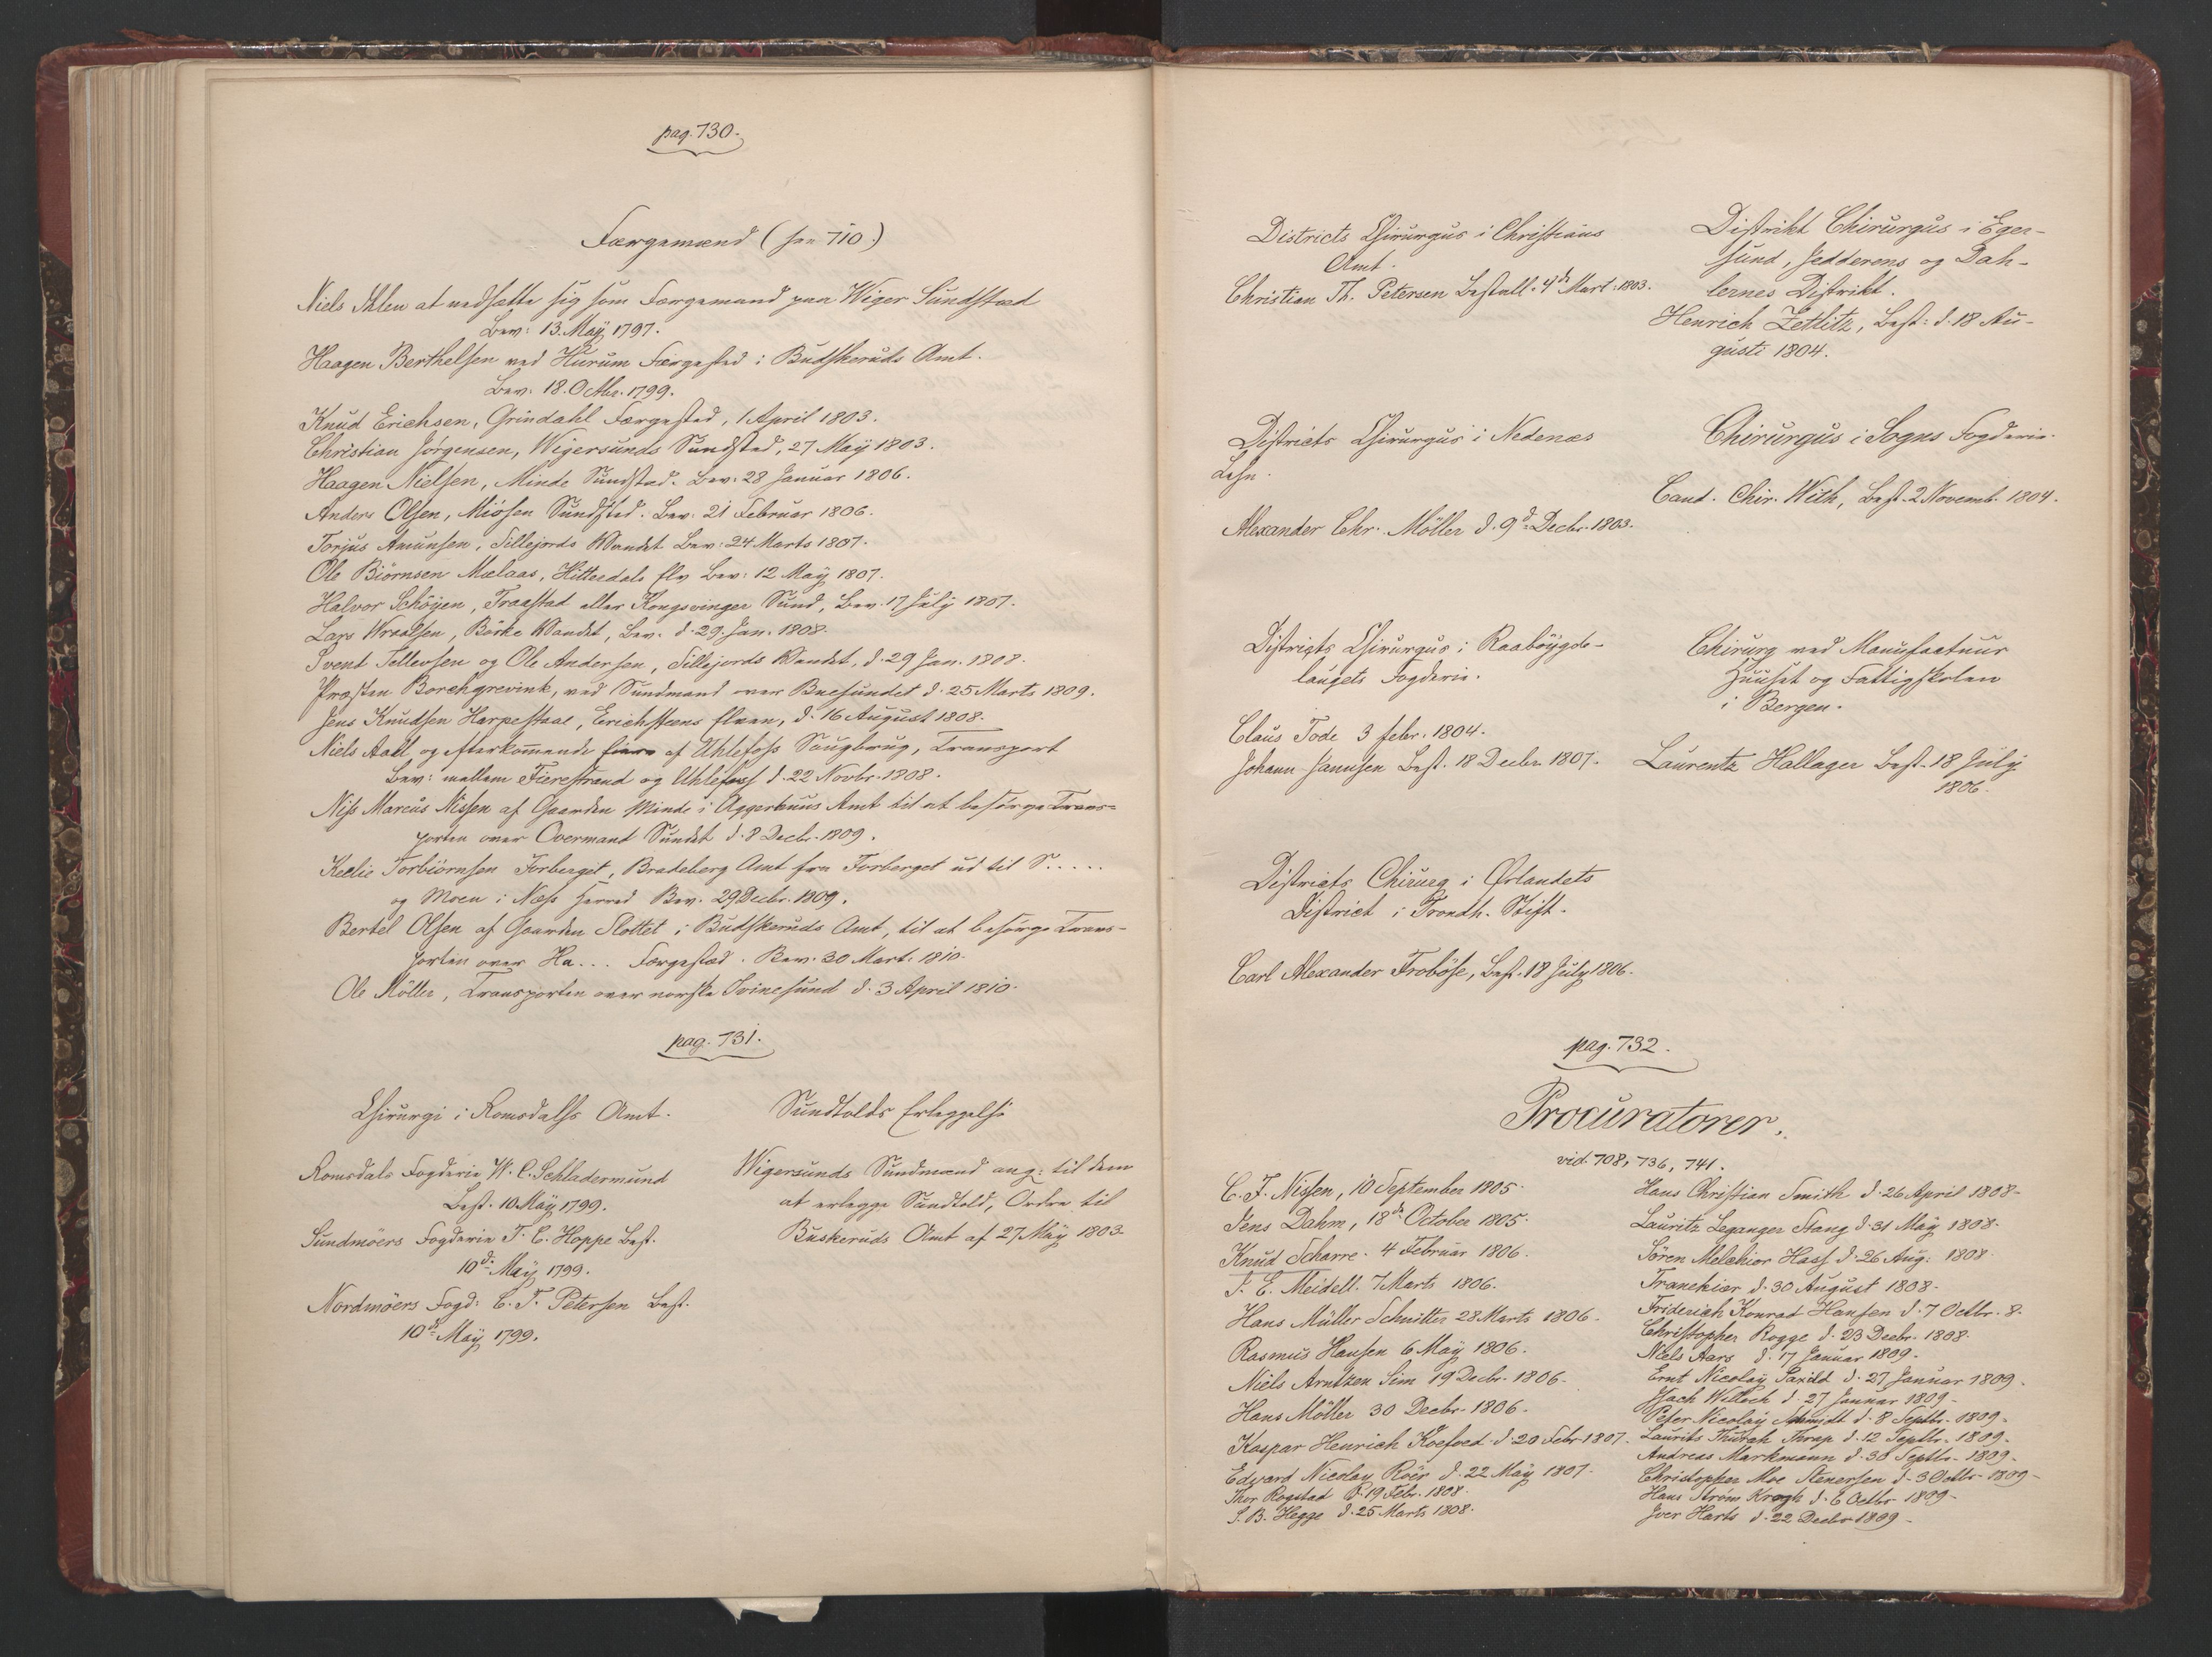 pag. 730.
Færgemænd (see 710.)
Niels Ihlen at nedsætte sig som Færgemand paa Wiger Sundsted
Bev: 13. Maÿ 1797.
Haagen Berthelsen ved Hurum Færgested i Budskeruds Amt.
Bev. 18. Octbr. 1799.
Knud Erichsen, Grindahl Færgested, 1 April 1803.
Christian Jørgensen, Wigersunds Sundsted, 27 Maÿ 1803.
Haagen Nielsen, Minde Sundsted. Bev: 28 Januar 1806.
Anders Olsen, Miösen Sundsted. Bev: 21 Februar 1806.
Torjus Amunsen, Tillejords Vandet Bev: 24 Marts 1807.
Ole Biörnsen Mælaas, Hitterdals Elv Bev: 12 Maÿ 1807.
Halvor Schöyen, Traastad eller Kongsvinger Sund, Bev. 17 July 1807.
Lars Wraalsen, Börke Vandet, Bev. d. 29. Jan. 1808.
Svent Tellevsen og Ole Andersen, Tillejords Vandet, d. 29 Jan. 1808.
Præsten Borchgrevink, ved Sundmand over Buesundet d. 25 Marts 1809.
Jens Knudsen Harpestaae, Erichsteens Elven, d. 16 August 1808.
Niels Aall og efterkommende Eiere af Uhlefoss Saugbrug, Transport
Bev: mellem Fierestrand og Uhlefoss d. 22 Novbr. 1808.
Niss Marcus Nissen af Gaarden Minde i Aggerhuus Amt til at besørge Trans=
porten over Overmand Sundet d. 8 Decbr. 1809.
Keelie Torbiörnsen Forberget, Bradsberg Amt fra Forberget ud til S.....
og Moen i Næss Herred Bev. 29 Decbr. 1809.
Bertel Olsen af Gaarden Slottet i Budskeruds Amt, til at besørge Trans-
porten over Ha... Færgested. Bev. 30 Mart. 1810.
Ole Möller, Transporten over norske Svinesund d. 3 April 1810.
pag. 731.
Chirurgi i Romsdalss Amt.
Romsdals Fogderie W. C. Schladermund
Best. 10 Maÿ 1799.
Sundmöers Fogderie T. C. Hoppe Best.
10de Maÿ 1799.
Nordmöers Fogd: C. F. Petersen Best.
10de Maÿ 1799.
Sundtolds Erleggelse
Wigersunds Sundmænd ang: til dem
at erlegge Sundtold, Ordre til
Buskeruds Amt af 27 Maÿ 1803.
Districts Chirurgus i Christians
Amt.
Christian Th. Petersen Bestall. 4de Mart. 1803.
Districts Chirurgus i Nedenæs
Lehn.
Alexander Chr. Möller d. 9de Decbr. 1803.
Districts Chirurgus i Raabÿgde-
laugets Fogderie.
Claus Tode 3 febr. 1804.
Johann Jannsen Best. 18 Decbr 1807.
Districts Chirurg i Ørlandets
District i Trondh. Stift.
Carl Alexander Froböse, Best. 18 July 1806.
Distrikt Chirurgus i Eger-
sund, Jedderens og Dah-
lernes Distrikt.
Henrich Zetlitz, Best: d. 18 Au-
gusti 1804.
Chirurgus i Sogns Fogderie.
Cand. Chir. With, Best. 2 Novemb. 1804.
Chirurg ved Manufactuur
Huuset og Fattigskolen
i Bergen.
Laurentz Hallager Best. 18 July
1806.
pag. 732.
Procuratorer.
vid. 708, 736, 741.
C. F. Nissen, 10 September 1805.
Jens Dahm, 18de October 1805.
Knud Scharre. 4 Februar 1806.
F. E. Meidell. 7 Marts 1806.
Hans Müller Schnitter 28 Marts 1806.
Rasmus Hansen 6 Maÿ 1806.
Niels Arntzen Sim 19 Decbr. 1806.
Hans Möller 30 Decbr. 1806.
Kaspar Henrich Koefoed. d. 20 Febr 1807.
Edvard Nicolay Röer d. 22 Maÿ 1807.
Thor Rogstad d. 19 Febr. 1808.
S. B. Hegge d. 25 Marts 1808.
Hans Christian Smith d. 26 April 1808.
Lauritz Leganger Stang d. 31 Maÿ 1808.
Sören Melchior Hass d. 26 Aug. 1808.
Franckier d. 30 August 1808.
Friderich Konrad Hansen d. 7 Octbr. 8.
Christopher Rogge d. 23 Decbr. 1808.
Niels Aars d. 17 Januar 1809.
Ernt Nicolaÿ Saxild d. 27 Januar 1809.
Willoch d. 27 Januar 1809.
Peter Nicolaÿ Schmidt d. 8 Septbr. 1809.
Laurits Thurah Thrap d. 12 Septbr. 1809.
Andreas Markmann d. 30 Septbr. 1809.
Christopher Moe Stenersen d. 3 Octbr. 1809.
Hans Strøm Krogh d. 6 Octbr 1809.
Iver Harts d. 22 Decbr 1809.